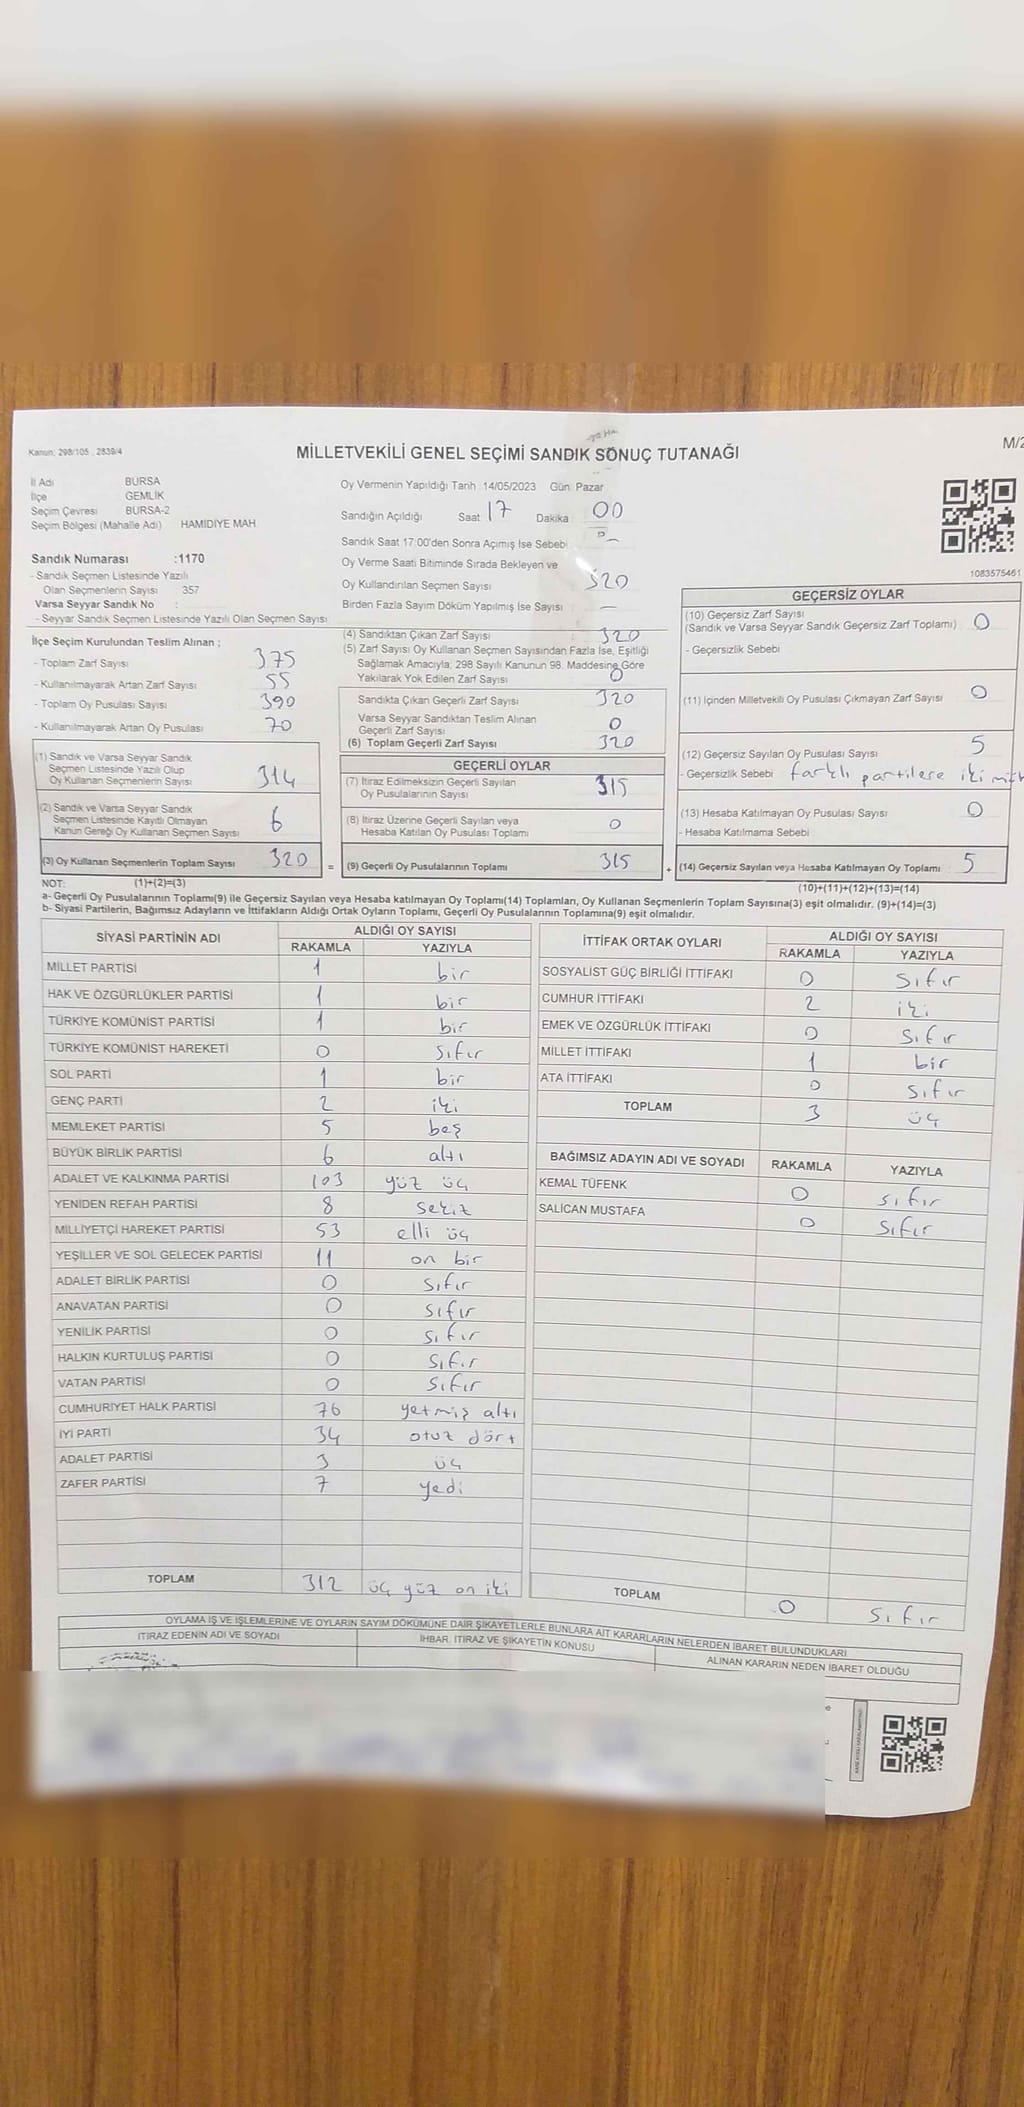 Kanun: 298/105 , 2839/4
MİLLETVEKİLİ GENEL SEÇİMİ SANDIK SONUÇ TUTANAĞI
M/2
İl Adı BURSA
İlçe GEMLİK
Seçim Çevresi BURSA-2
Seçim Bölgesi (Mahalle Adı) HAMİDİYE MAH
Sandık Numarası :1170
- Sandık Seçmen Listesinde Yazılı
Olan Seçmenlerin Sayısı 357
Varsa Seyyar Sandık No :
- Seyyar Sandık Seçmen Listesinde Yazılı Olan Seçmen Sayısı
Oy Vermenin Yapıldığı Tarih 14/05/2023 Gün: Pazar
Sandığın Açıldığı Saat 17 Dakika 00
Sandık Saat 17:00'den Sonra Açımış İse Sebebi
Oy Verme Saati Bitiminde Sırada Bekleyen ve
Oy Kullandırılan Seçmen Sayısı 320
Birden Fazla Sayım Döküm Yapılmış İse Sayısı —
1083575461
İlçe Seçim Kurulundan Teslim Alınan ;
- Toplam Zarf Sayısı 375
- Kullanılmayarak Artan Zarf Sayısı 55
- Toplam Oy Pusulası Sayısı 390
- Kullanılmayarak Artan Oy Pusulası 70
(1) Sandık ve Varsa Seyyar Sandık
Seçmen Listesinde Yazılı Olup
Oy Kullanan Seçmenlerin Sayısı 314
(2) Sandık ve Varsa Seyyar Sandık
Seçmen Listesinde Kayıtlı Olmayan
Kanun Gereği Oy Kullanan Seçmen Sayısı 6
(3) Oy Kullanan Seçmenlerin Toplam Sayısı 320 =
(4) Sandıktan Çıkan Zarf Sayısı 320
(5) Zarf Sayısı Oy Kullanan Seçmen Sayısından Fazla İse, Eşitliği
Sağlamak Amacıyla; 298 Sayılı Kanunun 98. Maddesine Göre
Yakılarak Yok Edilen Zarf Sayısı 0
Sandıkta Çıkan Geçerli Zarf Sayısı 320
Varsa Seyyar Sandıktan Teslim Alınan
Geçerli Zarf Sayısı 0
(6) Toplam Geçerli Zarf Sayısı 320
GEÇERLİ OYLAR
(7) İtiraz Edilmeksizin Geçerli Sayılan
Oy Pusulalarının Sayısı 315
(8) İtiraz Üzerine Geçerli Sayılan veya
Hesaba Katılan Oy Pusulası Toplamı 0
(9) Geçerli Oy Pusulalarının Toplamı 315 +
GEÇERSİZ OYLAR
(10) Geçersiz Zarf Sayısı
(Sandık ve Varsa Seyyar Sandık Geçersiz Zarf Toplamı) 0
- Geçersizlik Sebebi
(11) İçinden Milletvekili Oy Pusulası Çıkmayan Zarf Sayısı 0
(12) Geçersiz Sayılan Oy Pusulası Sayısı 5
- Geçersizlik Sebebi farklı partilere iki
(13) Hesaba Katılmayan Oy Pusulası Sayısı 0
- Hesaba Katılmama Sebebi
(14) Geçersiz Sayılan veya Hesaba Katılmayan Oy Toplamı 5
NOT: (1)+(2)=(3)
(10)+(11)+(12)+(13)=(14)
a- Geçerli Oy Pusulalarının Toplamı(9) ile Geçersiz Sayılan veya Hesaba katılmayan Oy Toplamı(14) Toplamları, Oy Kullanan Seçmenlerin Toplam Sayısına(3) eşit olmalıdır. (9)+(14)=(3)
b- Siyasi Partilerin, Bağımsız Adayların ve İttifakların Aldığı Ortak Oyların Toplamı, Geçerli Oy Pusulalarının Toplamına(9) eşit olmalıdır.
SİYASİ PARTİNİN ADI ALDIĞI OY SAYISI
RAKAMLA YAZIYLA
MİLLET PARTİSİ 1 bir
HAK VE ÖZGÜRLÜKLER PARTİSİ 1 bir
TÜRKİYE KOMÜNİST PARTİSİ 1 bir
TÜRKİYE KOMÜNİST HAREKETİ 0 sıfır
SOL PARTİ 1 bir
GENÇ PARTİ 2 iki
MEMLEKET PARTİSİ 5 beş
BÜYÜK BİRLİK PARTİSİ 6 altı
ADALET VE KALKINMA PARTİSİ 103 yüz üç
YENİDEN REFAH PARTİSİ 8 sekiz
MİLLİYETÇİ HAREKET PARTİSİ 53 elli üç
YEŞİLLER VE SOL GELECEK PARTİSİ 11 on bir
ADALET BİRLİK PARTİSİ 0 sıfır
ANAVATAN PARTİSİ 0 sıfır
YENİLİK PARTİSİ 0 sıfır
HALKIN KURTULUŞ PARTİSİ 0 sıfır
VATAN PARTİSİ 0 sıfır
CUMHURİYET HALK PARTİSİ 76 yetmiş altı
İYİ PARTİ 34 otuz dört
ADALET PARTİSİ 3 üç
ZAFER PARTİSİ 7 yedi
TOPLAM 312 üç yüz on iki
İTTİFAK ORTAK OYLARI ALDIĞI OY SAYISI
RAKAMLA YAZIYLA
SOSYALİST GÜÇ BİRLİĞİ İTTİFAKI 0 sıfır
CUMHUR İTTİFAKI 2 iki
EMEK VE ÖZGÜRLÜK İTTİFAKI 0 sıfır
MİLLET İTTİFAKI 1 bir
ATA İTTİFAKI 0 sıfır
TOPLAM 3 üç
BAĞIMSIZ ADAYIN ADI VE SOYADI RAKAMLA YAZIYLA
KEMAL TÜFENK 0 sıfır
SALİCAN MUSTAFA 0 sıfır
TOPLAM 0 sıfır
OYLAMA İŞ VE İŞLEMLERİNE VE OYLARIN SAYIM DÖKÜMÜNE DAİR ŞİKAYETLERLE BUNLARA AİT KARARLARIN NELERDEN İBARET BULUNDUKLARI
İTİRAZ EDENİN ADI VE SOYADI İHBAR, İTİRAZ VE ŞİKAYETİN KONUSU ALINAN KARARIN NEDEN İBARET OLDUĞU